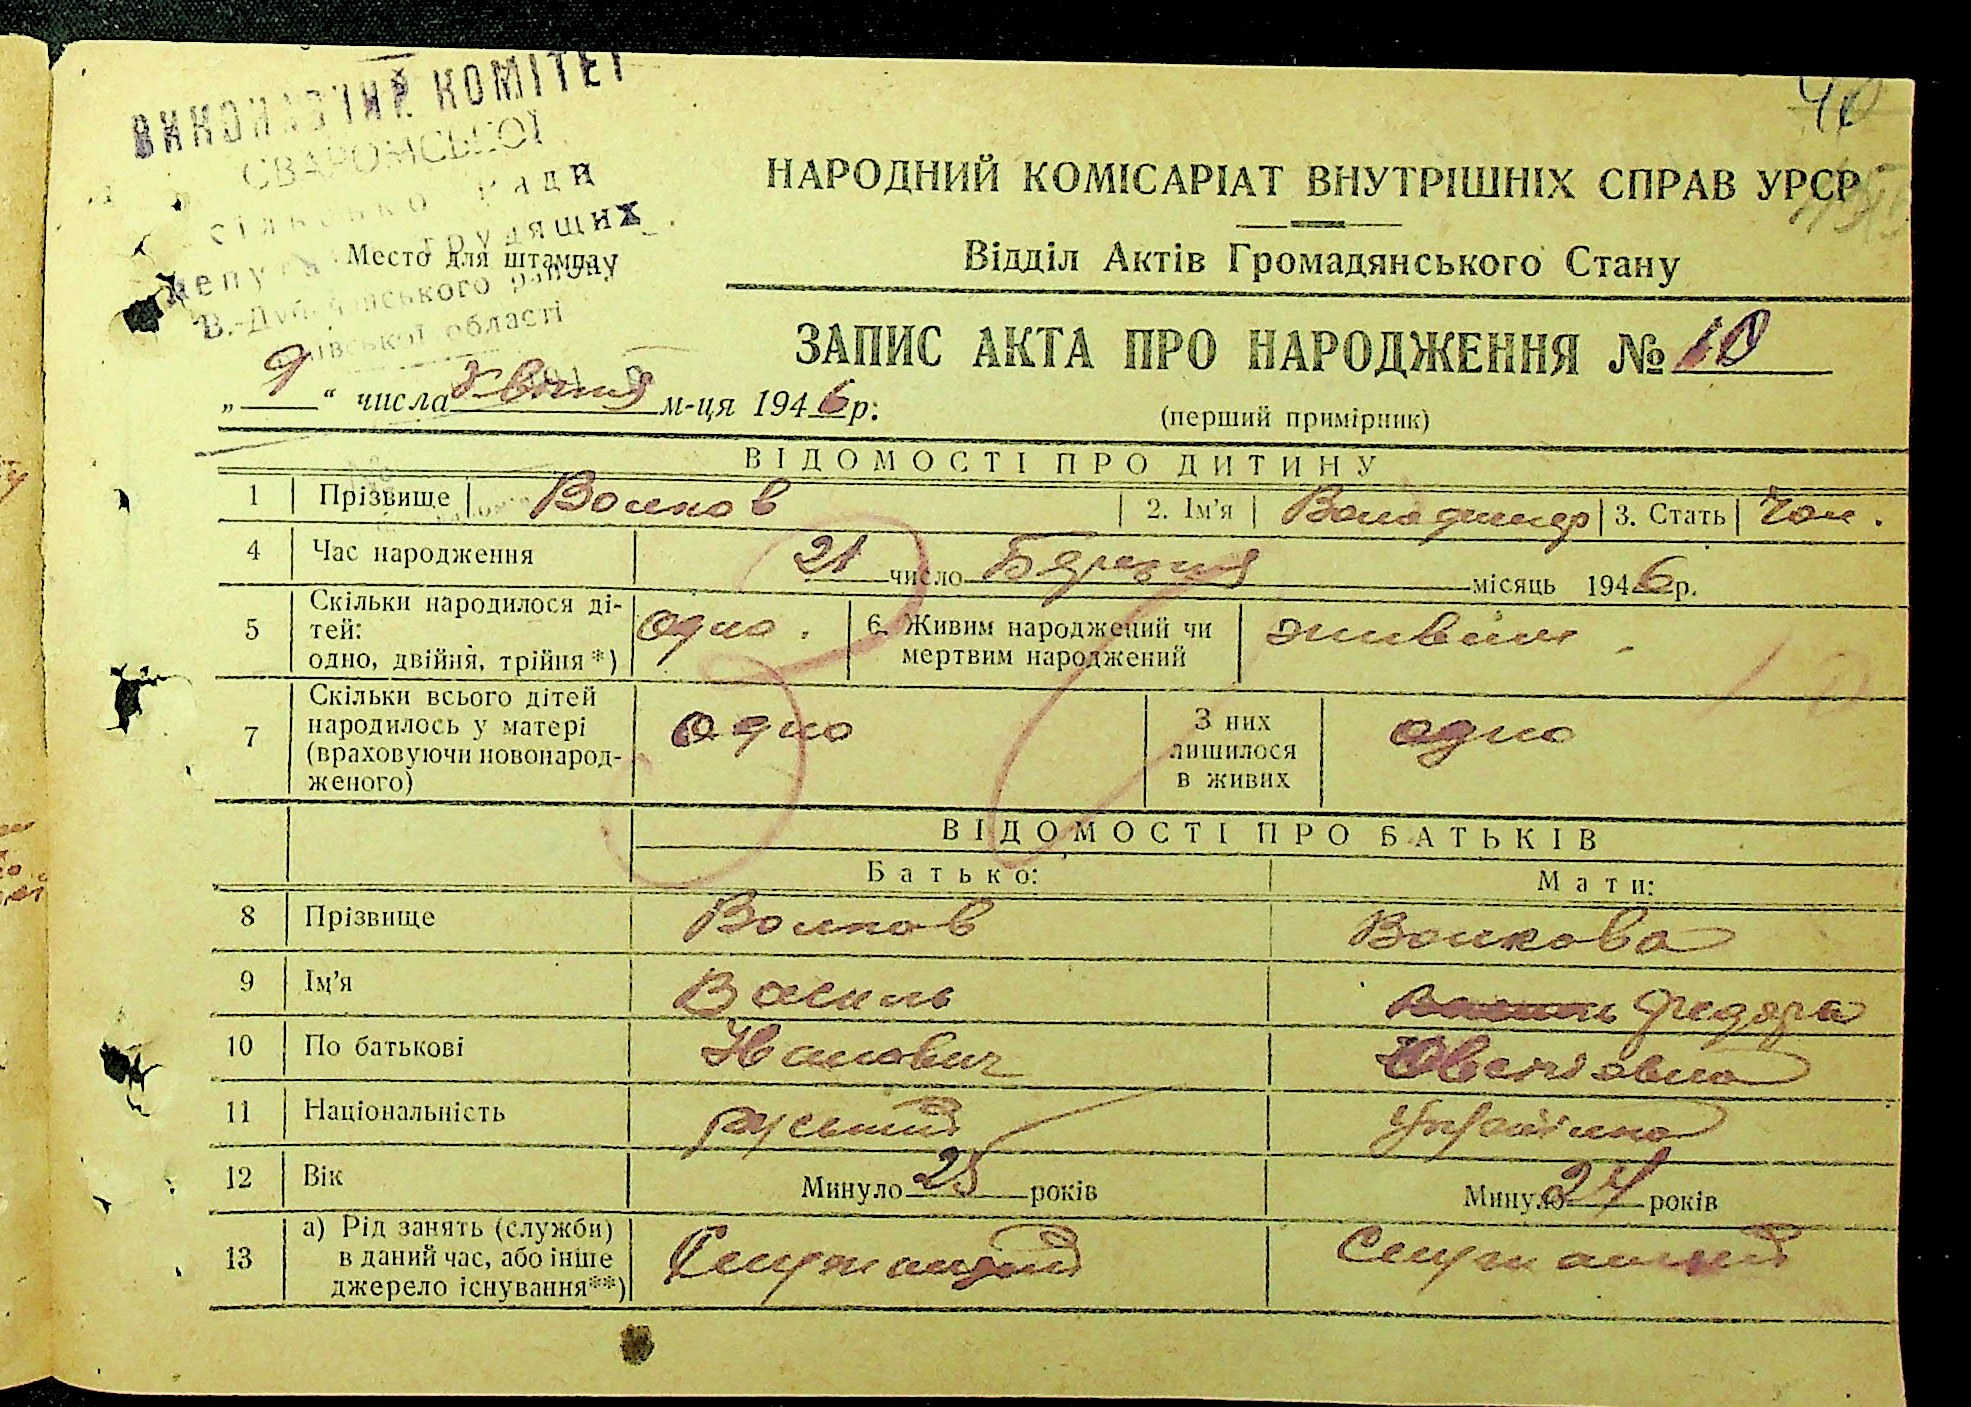 ВИКОНАВЧИЙ КОМІТЕТ
СВАРОМСЬКОЇ
сільсько ради
депутатів трудящих
Место для штампу
В.-Дубечанського району
Київської області
40
НАРОДНИЙ КОМІСАРІАТ ВНУТРІШНІХ СПРАВ УРСР
Відділ Актів Громадянського Стану
ЗАПИС АКТА ПРО НАРОДЖЕННЯ № 10
„9“ числа квітня м-ця 1946 р.
(перший примірник)
ВІДОМОСТІ ПРО ДИТИНУ
1 Прізвище Волков 2. Ім'я Володимер 3. Стать Чол.
4 Час народження 21 число Березня місяць 1946 р.
5 Скільки народилося ді-
тей:
одно, двійня, трійня *) одно. 6. Живим народжений чи
мертвим народжений живим.
7 Скільки всього дітей
народилось у матері
(враховуючи новонарод-
женого) одно З них
лишилося
в живих одно
ВІДОМОСТІ ПРО БАТЬКІВ
Батько: Мати:
8 Прізвище Волков Волкова
9 Ім'я Василь Федора
10 По батькові Іванович
11 Національність руський Українка
12 Вік Минуло 25 років Минуло 24 років
13 а) Рід занять (служби)
в даний час, або інше
джерело існування**) Служащий Служащий